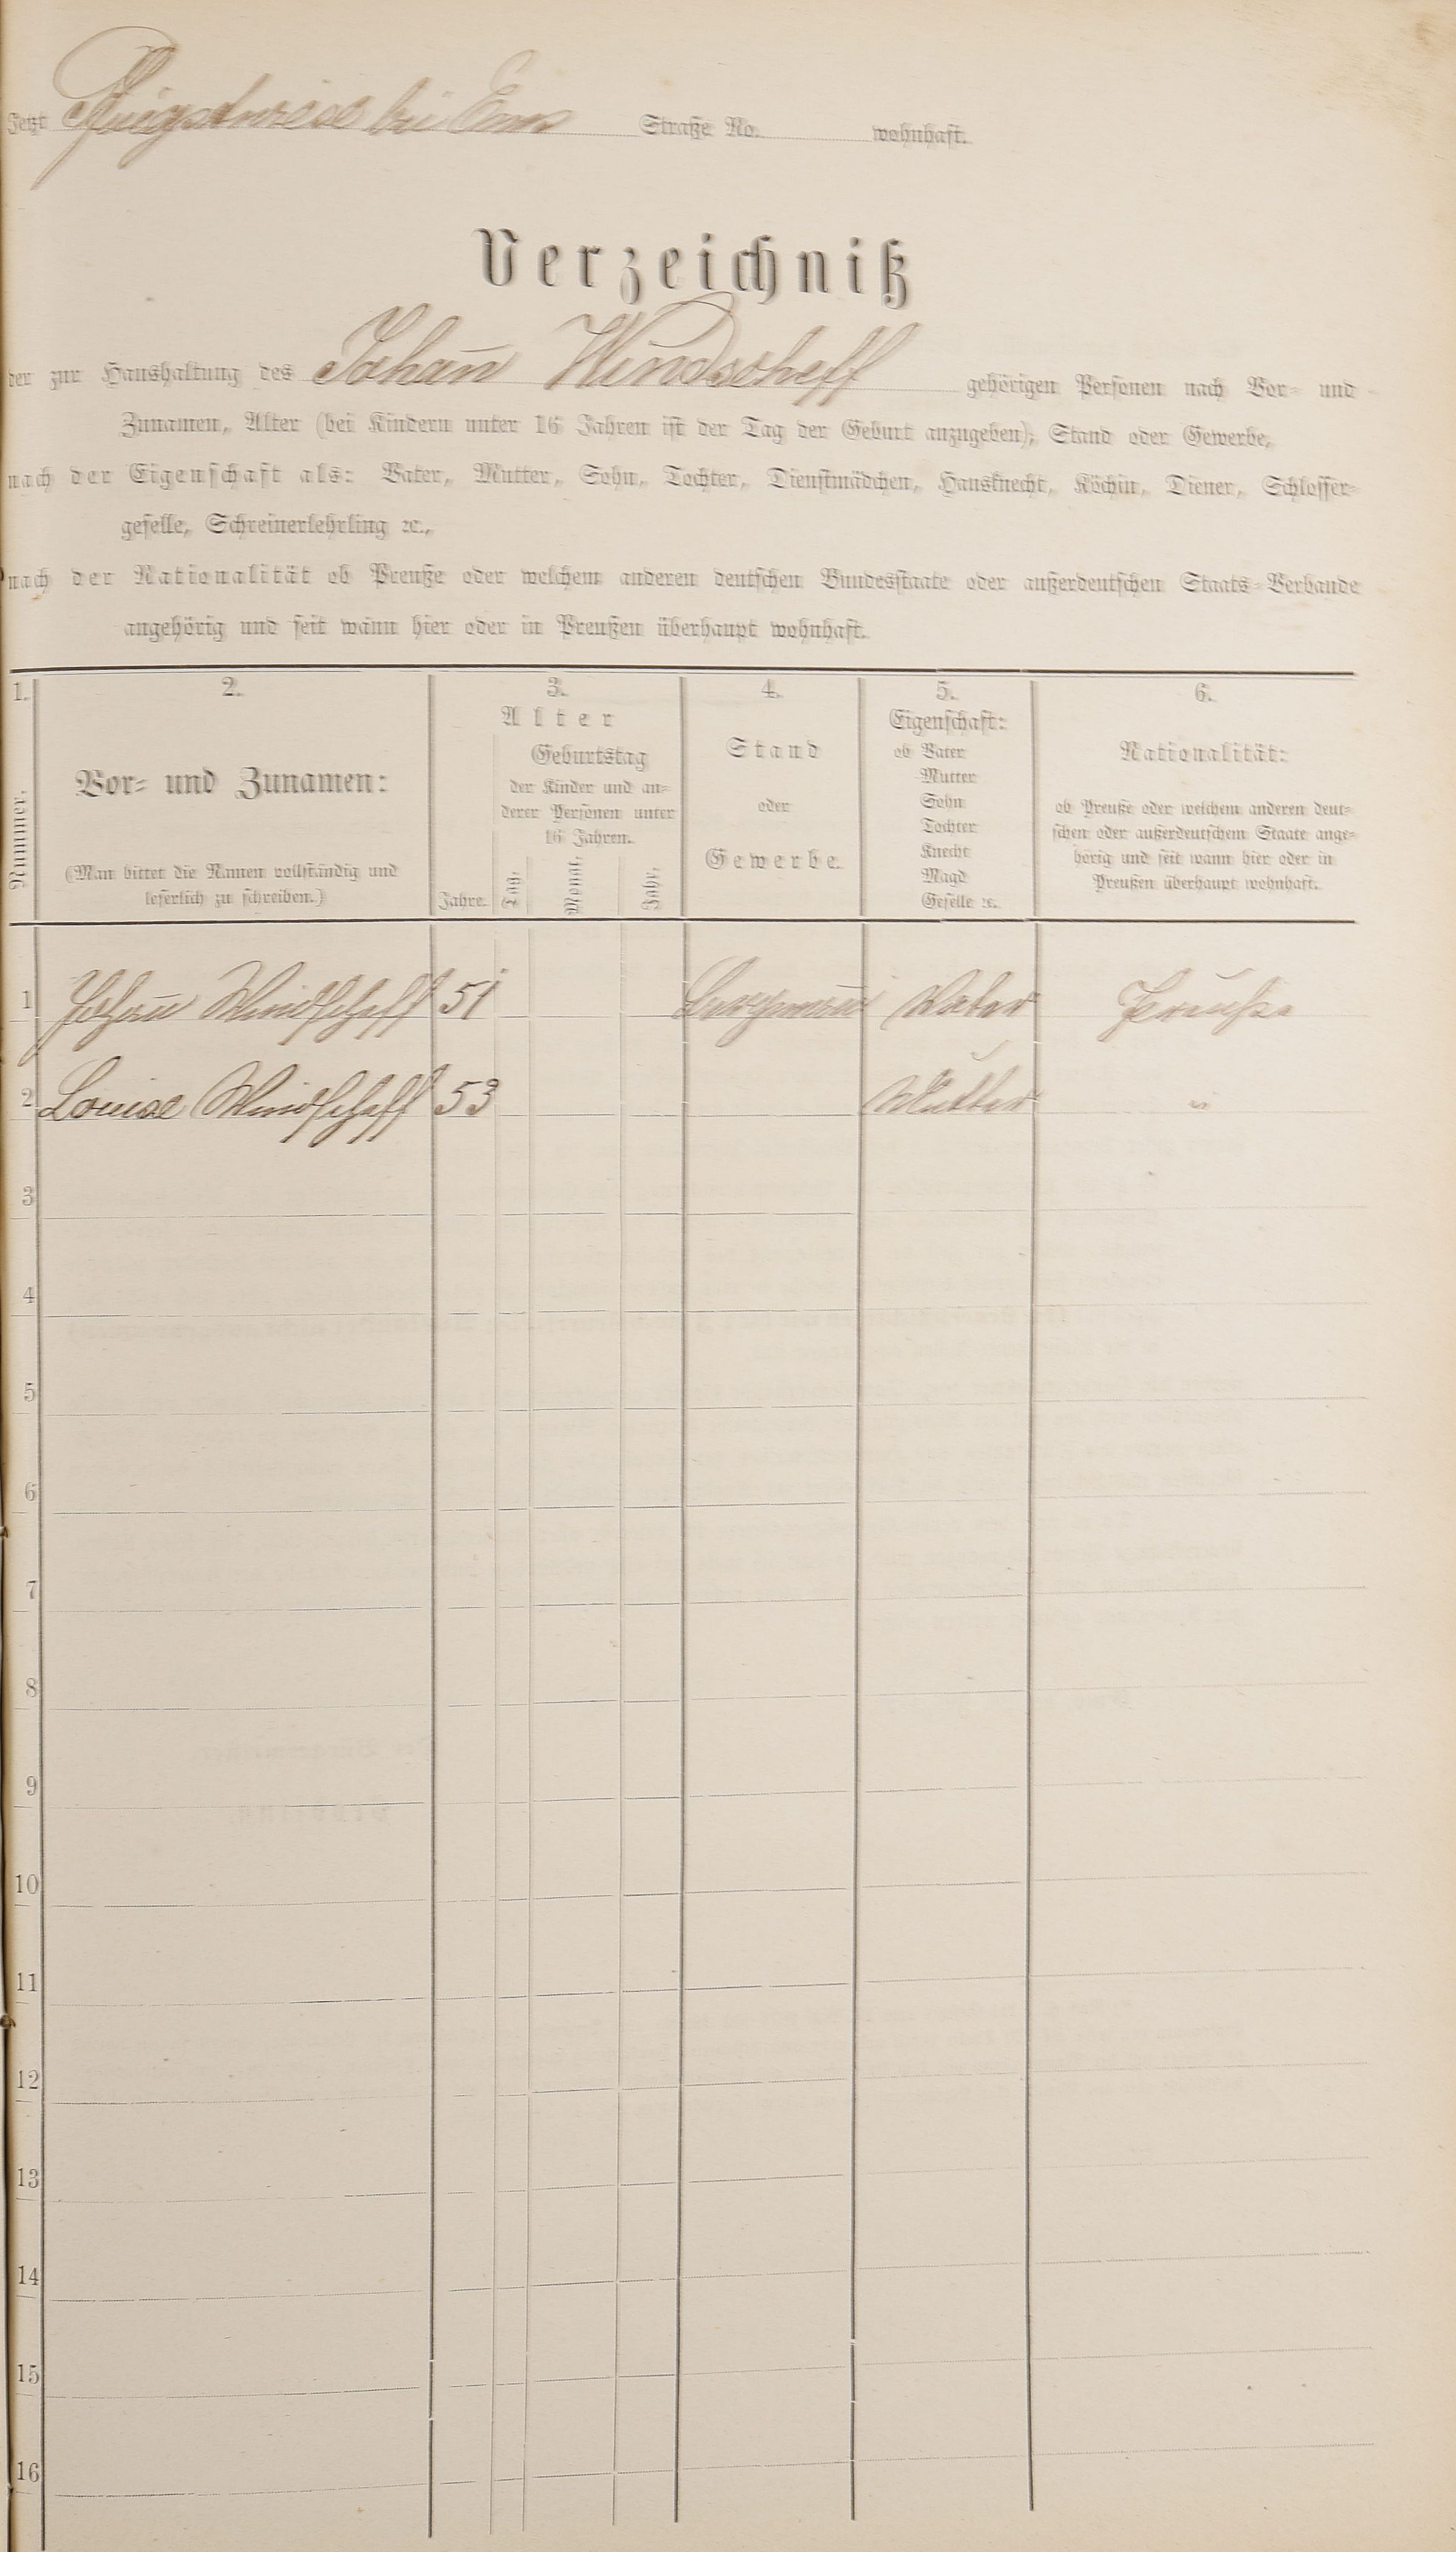 Jetzt Pfingstwiese bei Ems Straße No. wohnhaft.
Verzeichniß
der zur Haushaltung des Johañ Windscheff gehörigen Personen nach Vor- und
Zunamen, Alter (bei Kindern unter 16 Jahren ist der Tag der Geburt anzugeben); Stand oder Gewerbe,
nach der Eigenschaft als: Vater, Mutter, Sohn, Tochter, Dienstmädchen, Hausknecht, Köchin, Diener, Schlosser-
geselle, Schreinerlehrling ꝛc.,
nach der Nationalität ob Preuße oder welchem anderen deutschen Bundesstaate oder außerdeutschen Staats-Verbande
angehörig und seit wann hier oder in Preußen überhaupt wohnhaft.
1. 2. 3. 4. 5. 6.
Nummer.
Vor- und Zunamen:
(Man bittet die Namen vollständig und
leserlich zu schreiben.)
Alter
Jahre.
Geburtstag
der Kinder und an-
derer Personen unter
16 Jahren.
Tag. Monat. Jahr.
Stand
oder
Gewerbe.
Eigenschaft:
ob Vater
Mutter
Sohn
Tochter
Knecht
Magd
Geselle ꝛc.
Nationalität:
ob Preuße oder welchem anderen deut-
schen oder außerdeutschem Staate ange-
hörig und seit wann hier oder in
Preußen überhaupt wohnhaft.
1 Johañ Windscheff 51 Bergmañ Vater Preuße
2 Louise Windscheff 53 Mutter "
3
4
5
6
7
8
9
10
11
12
13
14
15
16